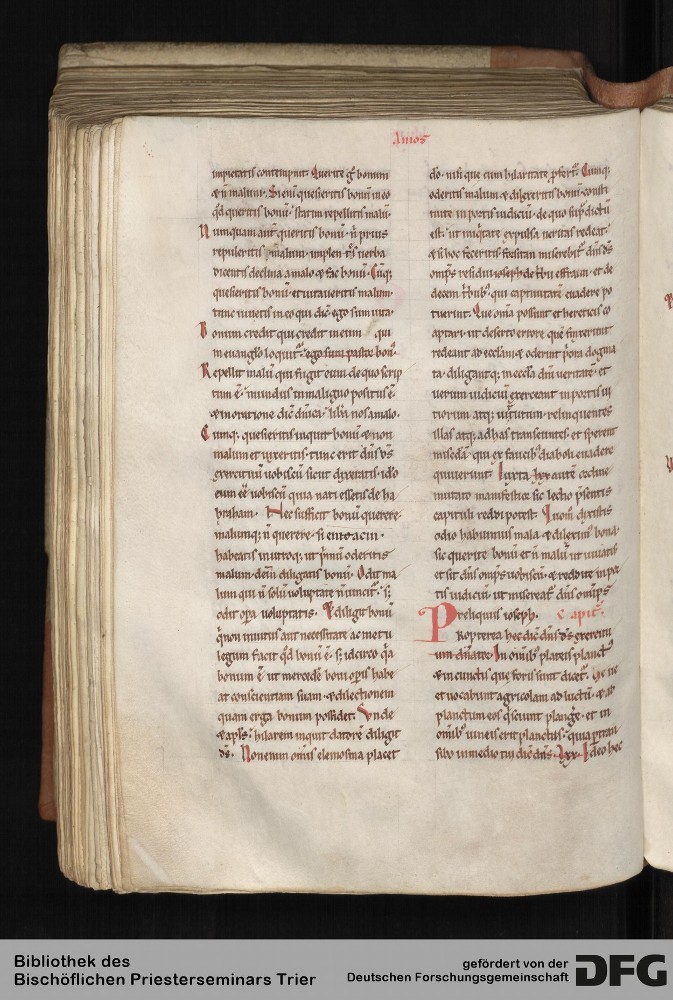 Amos
impietatis contempnit. Querite g̊ bonum
& ñ malum. Si eni͂ quesieritis bonu͂ in eo
qd̓ queritis bonu͂. statim repellitis malu͂.
Nunquam aut͂ queritis bonu͂. ñ prius
repuleritis malum. implentes uerba
dicentis declina a malo & fac bonu͂. Cu͂q;
quesieritis bonu͂. et uitaueritis malum.
tunc uiuetis in eo qui dic̄. ego sum uita.
Bonum credit qui credit in eum qui
in euang̅lio loquit̃. ego sum pastor bon᷒.
Repellit malu͂ qui fugit eum. de quo scrip
tum ē. mundus in maligno positus ē.
& in oratione dic̄ dn̄ica. lib̅a nos a malo.
Cumq; quesieritis inquit bonu͂ & non
malum et uixeritis. tunc erit dn̄s d̄s
exercituu͂ uobiscu͂ sicut dixistis. id̓o
eum ēē uobiscu͂ quia nati essetis de ha
braham. Nec sufficit bonu͂ querere.
malumq; ñ querere. si
habeatis in utroq; ut p̓mu͂ oderitis
malum. dein͂ diligatis bonu͂. Odit ma
lum qui ñ solu͂ uoluptate ñ uincit̃. s;
odit op̃a uoluptatis. & diligit bonu͂
q̓ non inuitus aut necessitate ac metu
legum facit qd̓ bonu͂ ē. s; idcirco q̓a
bonum ē. ut mercede͂ boni op̃is habe
at conscientiam suam. & dilectionem
quam erga bonum possidet. Vnde
& apl̄s. hilarem inquit datore͂ diligit
d̄s. Non enim om̄is elemosina placet
d̄o. nisi que cum hilaritate p̃fert̃. Cumq;
oderitis malum & dilexeritis bonu͂. consti
tuite in portis iudiciu͂. de quo sup̓ dictu͂
est. ut iniq̓tate expulsa ueritas redeat.
& si hoc feceritis. forsitan miserebit̃ dn̄s d̄s
om̄ps reliquiis ioseph de tribu effraim. et de
decem t̓bub᷒. qui captiuitate͂ euadere po
tuerint. Que om̄ia possunt et hereticis co
aptari. ut deserto errore que͂ finxerunt
redeant ad eccl̄iam. & oderint p̓ora dogma
ta. diligantq; in eccl̄a dn̄i ueritate͂. et
uerum iudiciu͂ exerceant in portis ui
tiorum atq; uirtutum. relinquentes
illas atq; ad has transeuntes. et sperent
mis̃dia͂. qui ex faucib᷒ diaboli euadere
quiuerint. Iuxta lxx aute͂ ordine
mutato manifestior sic lectio p̃sentis
capituli reddi potest. Quom̊ dixistis
odio habuimus mala. & dilexim᷒ bona.
sic querite bonu͂ et ñ malu͂ ut uiuatis
et sit dn̄s om̄ps uobiscu͂. & reddite in por
tis iudiciu͂. ut misereat̃ dn̄s om̄ips
reliquiis ioseph. Capit̃.
Propterea hec dic̄ dn̄s d̄s exercitu
um dn̄ator. In om̄ib᷒ plateis planct᷒.
& in cunctis que foris sunt dicet̃. ue ue
et uocabunt agricolam ad luctu͂. & ad
planctum eos q̓ sciunt plang̃e. et in
om̄ib᷒ uineis erit planctus. quia p̃tran
sibo in medio tui dic̄ dn̄s. Lxx. Id̓eo hec
Bibliothek des
Bischöflichen Priesterseminars Trier
gefördert von der
Deutschen Forschungsgemeinschaft
DFG